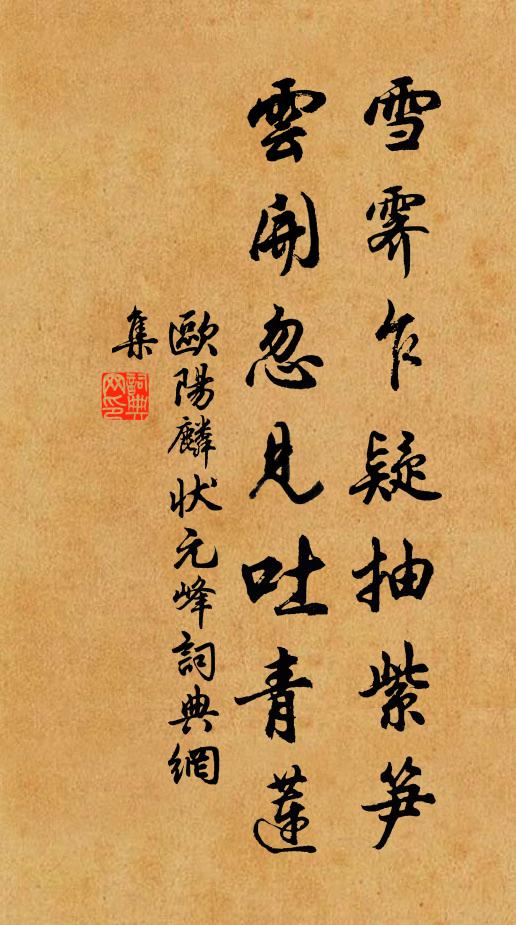 雪霽乍疑抽紫笋
雲開忽見吐青蓮
歐陽麟狀元峰詞典網
集
詞典
网印